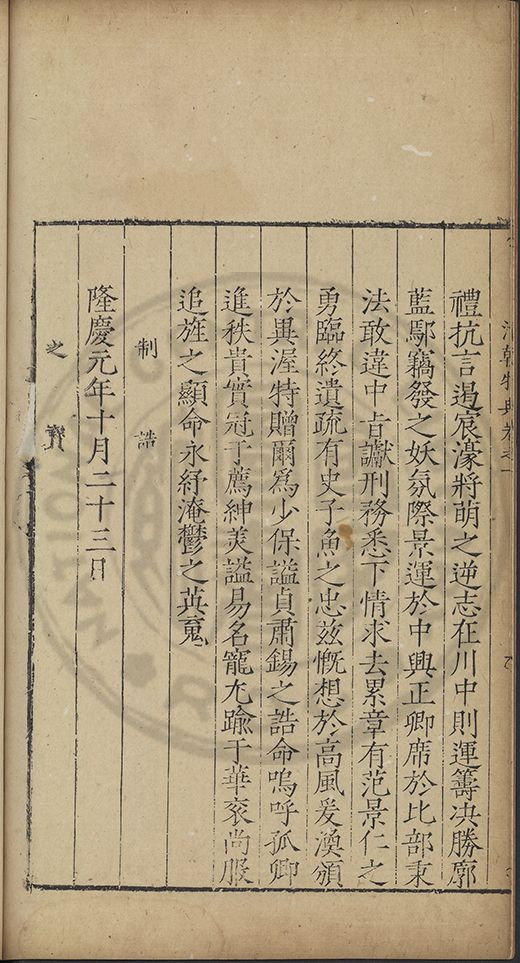 禮抗言遏宸濠將萌之逆志在川中則運籌决勝廓
藍鄢竊發之妖氛際景運於中興正卿席於比部秉
法敢違中旨讞刑務悉下情求去累章有范景仁之
勇臨終遺疏有史子魚之忠茲慨想於高風爰渙頒
於異渥特贈爾爲少保謚貞肅錫之誥命嗚呼孤卿
進秩貴實冠于薦紳美謚易名寵尤踰于華衮尚服
追旌之顯命永紓淹鬱之英䰟
制誥
隆慶元年十月二十三日
之寳